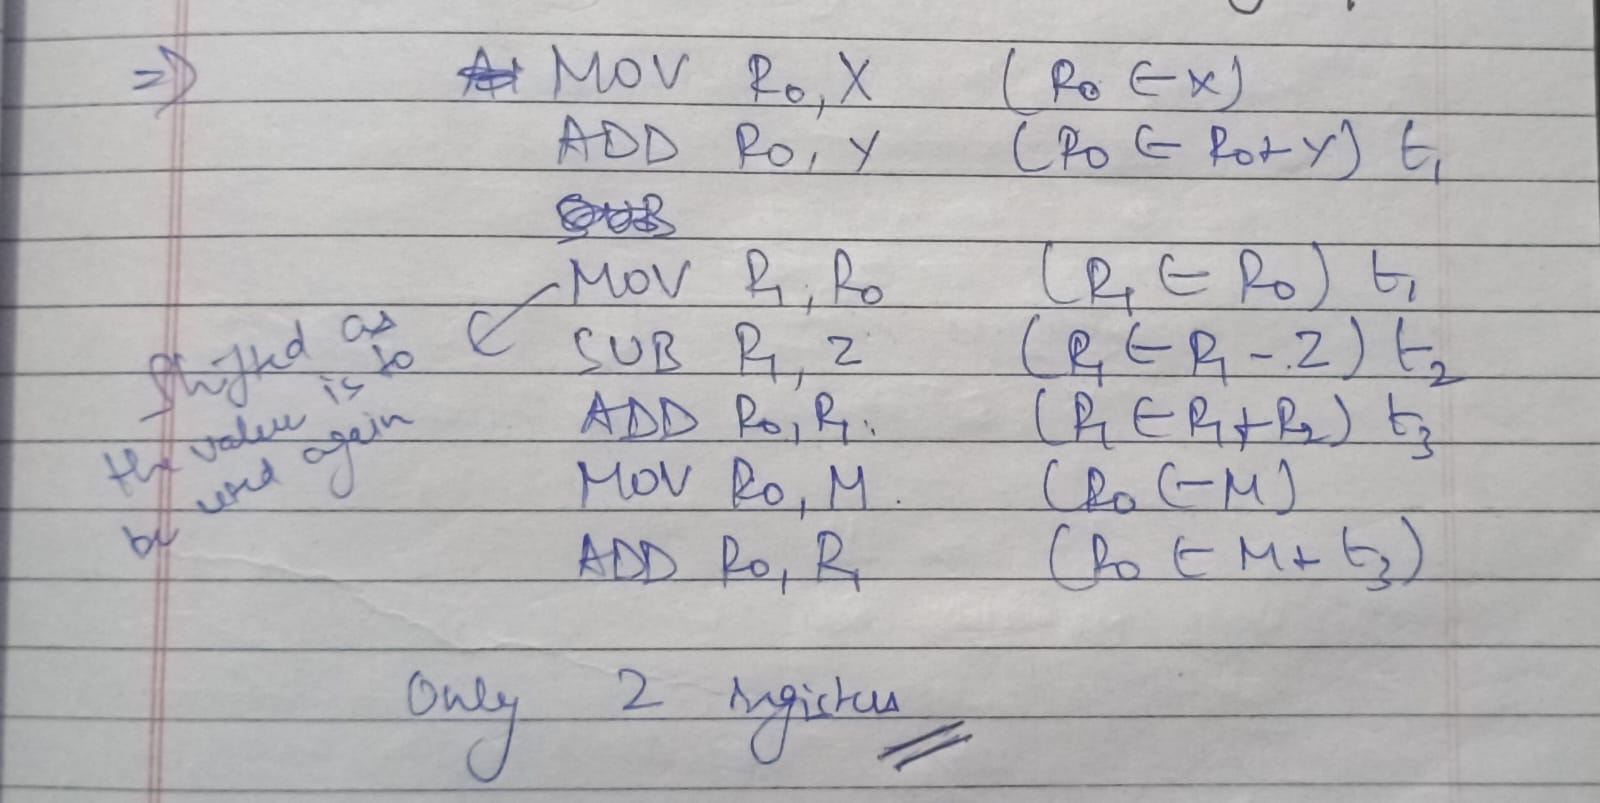 => MOV R₀, X (R₀ ← X)
ADD R₀, Y (R₀ ← R₀+Y) t₁
MOV R₁, R₀ (R₁ ← R₀) t₁
SUB R₁, Z (R₁ ← R₁ - Z) t₂
ADD R₀, R₁. (R₁ ← R₁+R₂) t₃
MOV R₀, M. (R₀ ← M)
ADD R₀, R₁ (R₀ ← M + t₃)
Shifted as
the value is to
be used again
Only 2 registers